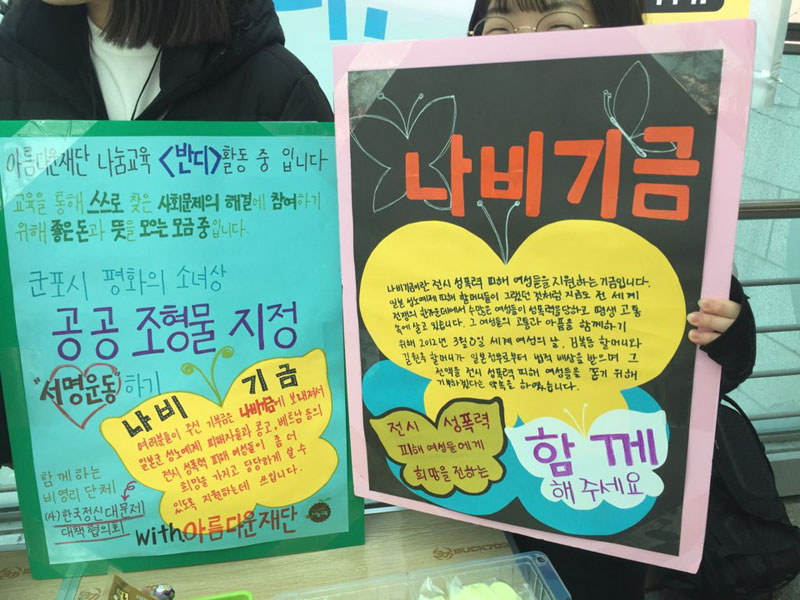 아름다운재단 나눔교육 <반디>활동 중 입니다
교육을 통해 스스로 찾은 사회문제의 해결에 참여하기
위해 좋은 돈과 뜻을 모으는 모금 중입니다.
군포시 평화의 소녀상
공공 조형물 지정
"서명운동"하기
나비기금
여러분들이 주신 기부금은 나비기금에 보내져서
일본군 성노예제 피해자들과 콩고, 베트남 등의
전시 성폭력 피해 여성들이 좀 더
희망을 가지고 당당하게 살 수
있도록 지원하는데 쓰입니다.
함께 하는
비영리 단체
(사)한국정신대문제
대책협의회
with아름다운재단
나비기금
나비기금이란 전시 성폭력 피해 여성들을 지원하는 기금입니다.
일본 성노예제 피해 할머니들이 그랬던 것처럼 지금도 전 세계
전쟁의 한가운데에서 수많은 여성들이 성폭력을 당하고 평생 고통
속에 살고 있습니다. 그 여성들의 고통과 아픔을 함께하기
위해 2012년 3월 8일 세계 여성의 날, 김복동 할머니와
길원옥 할머니가 일본정부로부터 법적 배상을 받으면 그
전액을 전시 성폭력 피해 여성들을 돕기 위해
기부하겠다는 약속을 하였습니다.
전시 성폭력
피해 여성들에게
희망을 전하는
함께
해 주세요